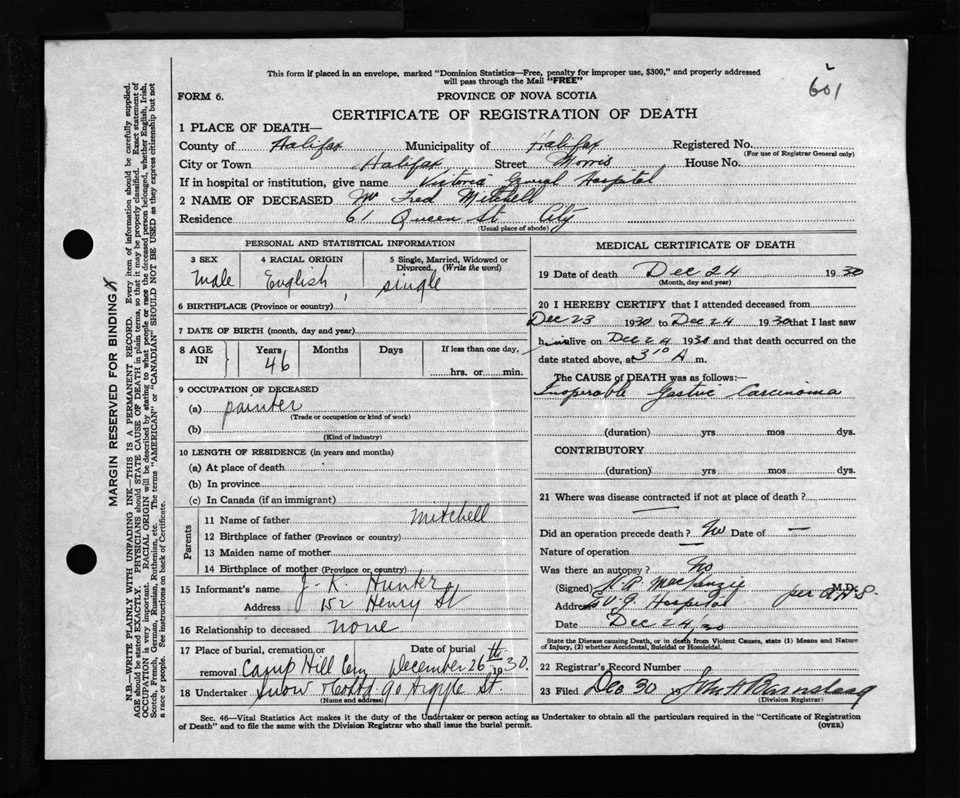 601
This form if placed in an envelope, marked "Dominion Statistics—Free, penalty for improper use, $300," and properly addressed
will pass through the Mail "FREE"
FORM 6. PROVINCE OF NOVA SCOTIA
CERTIFICATE OF REGISTRATION OF DEATH
1 PLACE OF DEATH—
County of Halifax Municipality of Halifax Registered No.
(For use of Registrar General only)
City or Town Halifax Street Morris House No.
If in hospital or institution, give name Victoria General Hospital
2 NAME OF DECEASED Mr Fred Mitchell
Residence 61 Queen St City
(Usual place of abode)
PERSONAL AND STATISTICAL INFORMATION
3 SEX 4 RACIAL ORIGIN 5 Single, Married, Widowed or
Divorced. (Write the word)
Male English single
6 BIRTHPLACE (Province or country)
7 DATE OF BIRTH (month, day and year)
8 AGE IN Years Months Days If less than one day,
46 hrs. or min.
9 OCCUPATION OF DECEASED
(a) painter
(Trade or occupation or kind of work)
(b)
(Kind of industry)
10 LENGTH OF RESIDENCE (in years and months)
(a) At place of death
(b) In province
(c) In Canada (if an immigrant)
Parents
11 Name of father Mitchell
12 Birthplace of father (Province or country)
13 Maiden name of mother
14 Birthplace of mother (Province or, country)
15 Informant's name J. K. Hunter
Address 152 Henry St
16 Relationship to deceased none
17 Place of burial, cremation or Date of burial
removal Camp Hill Cem December 26th 1930.
18 Undertaker Snow & Co Ltd 90 Argyle St.
(Name and address)
MEDICAL CERTIFICATE OF DEATH
19 Date of death Dec 24 1930
(Month, day and year)
20 I HEREBY CERTIFY that I attended deceased from
Dec 23 1930 to Dec 24 1930 that I last saw
him alive on Dec 24 1930 and that death occurred on the
date stated above, at 3 10 A m.
The CAUSE of DEATH was as follows:
Inoperable Gastric Carcinoma
(duration) yrs mos dys.
CONTRIBUTORY
(duration) yrs mos dys.
21 Where was disease contracted if not at place of death?
Did an operation precede death? No Date of —
Nature of operation —
Was there an autopsy? No
(Signed) MacKenzie M.D. per
Address V. G. Hospital
Date Dec 24/30
State the Disease causing Death, or in death from Violent Causes, state (1) Means and Nature
of Injury, (2) whether Accidental, Suicidal or Homicidal.
22 Registrar's Record Number
23 Filed Dec 30 John H Barnstead
(Division Registrar)
Sec. 46—Vital Statistics Act makes it the duty of the Undertaker or person acting as Undertaker to obtain all the particulars required in the "Certificate of Registration
of Death" and to file the same with the Division Registrar who shall issue the burial permit. (OVER)
MARGIN RESERVED FOR BINDING
N.B.—WRITE PLAINLY WITH UNFADING INK—THIS IS A PERMANENT RECORD. Every item of information should be carefully supplied.
AGE should be stated EXACTLY. PHYSICIANS should STATE CAUSE OF DEATH in plain terms, so that it may be properly classified. Exact statement of
OCCUPATION is very important. RACIAL ORIGIN will be described by stating to what people or race the deceased person belonged, whether English, Irish,
Scotch, French, German, Russian, Ruthenian, etc. The terms "AMERICAN" or "CANADIAN" SHOULD NOT BE USED as they express citizenship but not
a race or people. See instructions on back of Certificate.